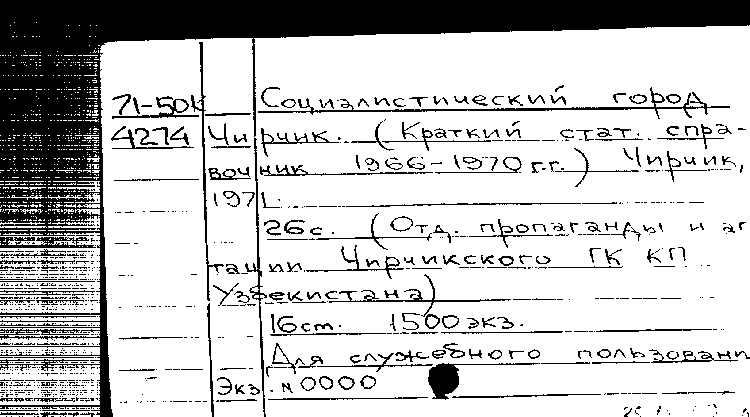 71-50К Социалистический город
4274 Чирчик. (Краткий стат. спра-
вочник 1966-1970 г.г.) Чирчик,
1971.
26с. (Отд. пропаганды и аг
тации Чирчикского ГК КП
Узбекистана)
16см. 1500 экз.
Для служебного пользовани
Экз. №0000